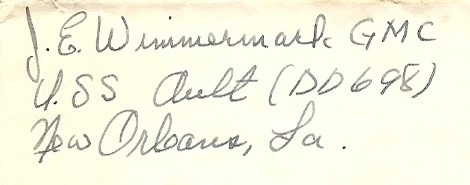 J. E. Wimmermark GMC
U.SS Ault (DD698)
New Orleans, La.